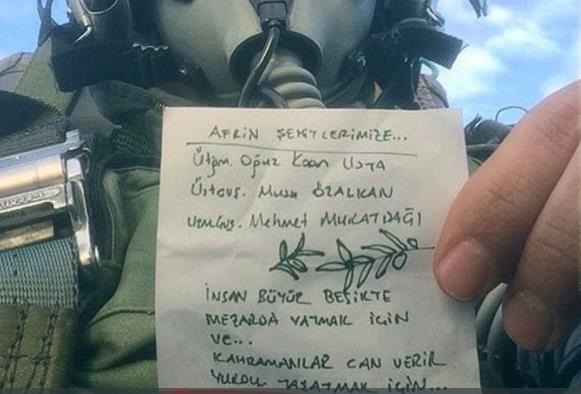 AFRİN ŞEHİTLERİMİZE...
Ütğm. Oğuz Kaan USTA
Üstçvş. Musa ÖZALKAN
UZMÇVŞ. Mehmet MURATDAĞI
İNSAN BÜYÜR BEŞİKTE
MEZARDA YATMAK İÇİN
VE...
KAHRAMANLAR CAN VERİR
YURDU YAŞATMAK İÇİN...